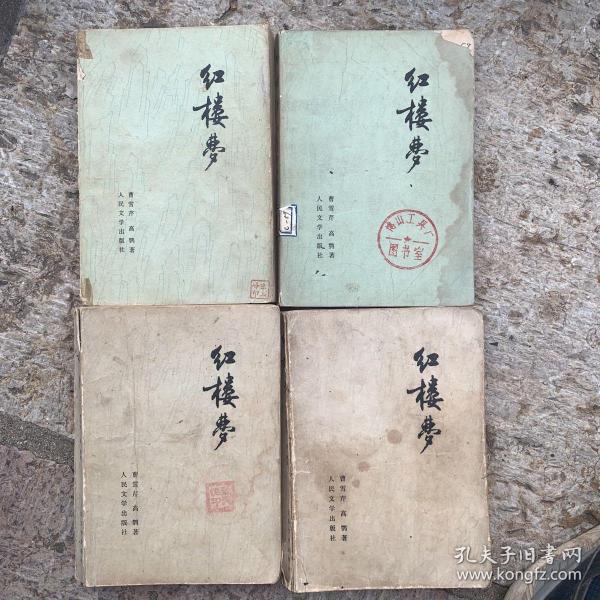 红楼梦
曹雪芹 高鹗著
人民文学出版社
红楼梦
曹雪芹 高鹗著
人民文学出版社
山工具厂
图书室
红楼梦
曹雪芹 高鹗著
人民文学出版社
红楼梦
曹雪芹 高鹗著
人民文学出版社
孔夫子旧书网
www.kongfz.com